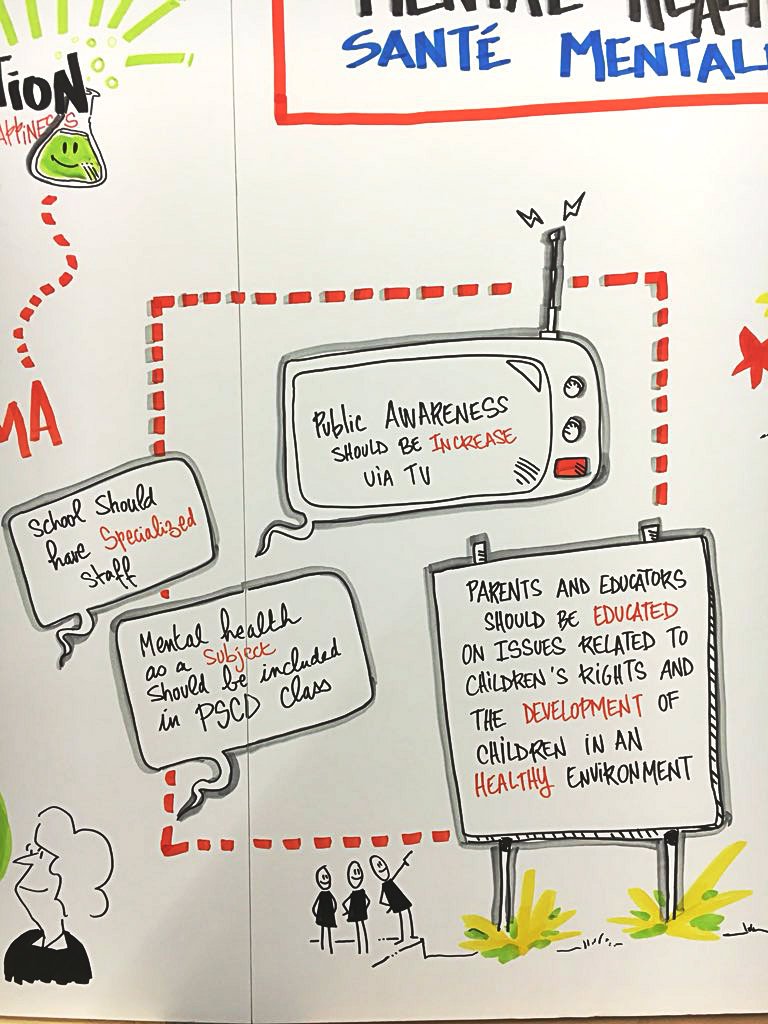 MENTAL HEALT
SANTÉ MENTAL
TION
APPINESS
MA
Public AWARENESS
SHOULD BE INCREASE
VIA TV
School Should
have Specialized
Staff
Mental health
as a Subject
Should be included
in PSCD Class
PARENTS AND EDUCATORS
SHOULD BE EDUCATED
ON ISSUES RELATED TO
CHILDREN'S RIGHTS AND
THE DEVELOPMENT OF
CHILDREN IN AN
HEALTHY ENVIRONMENT